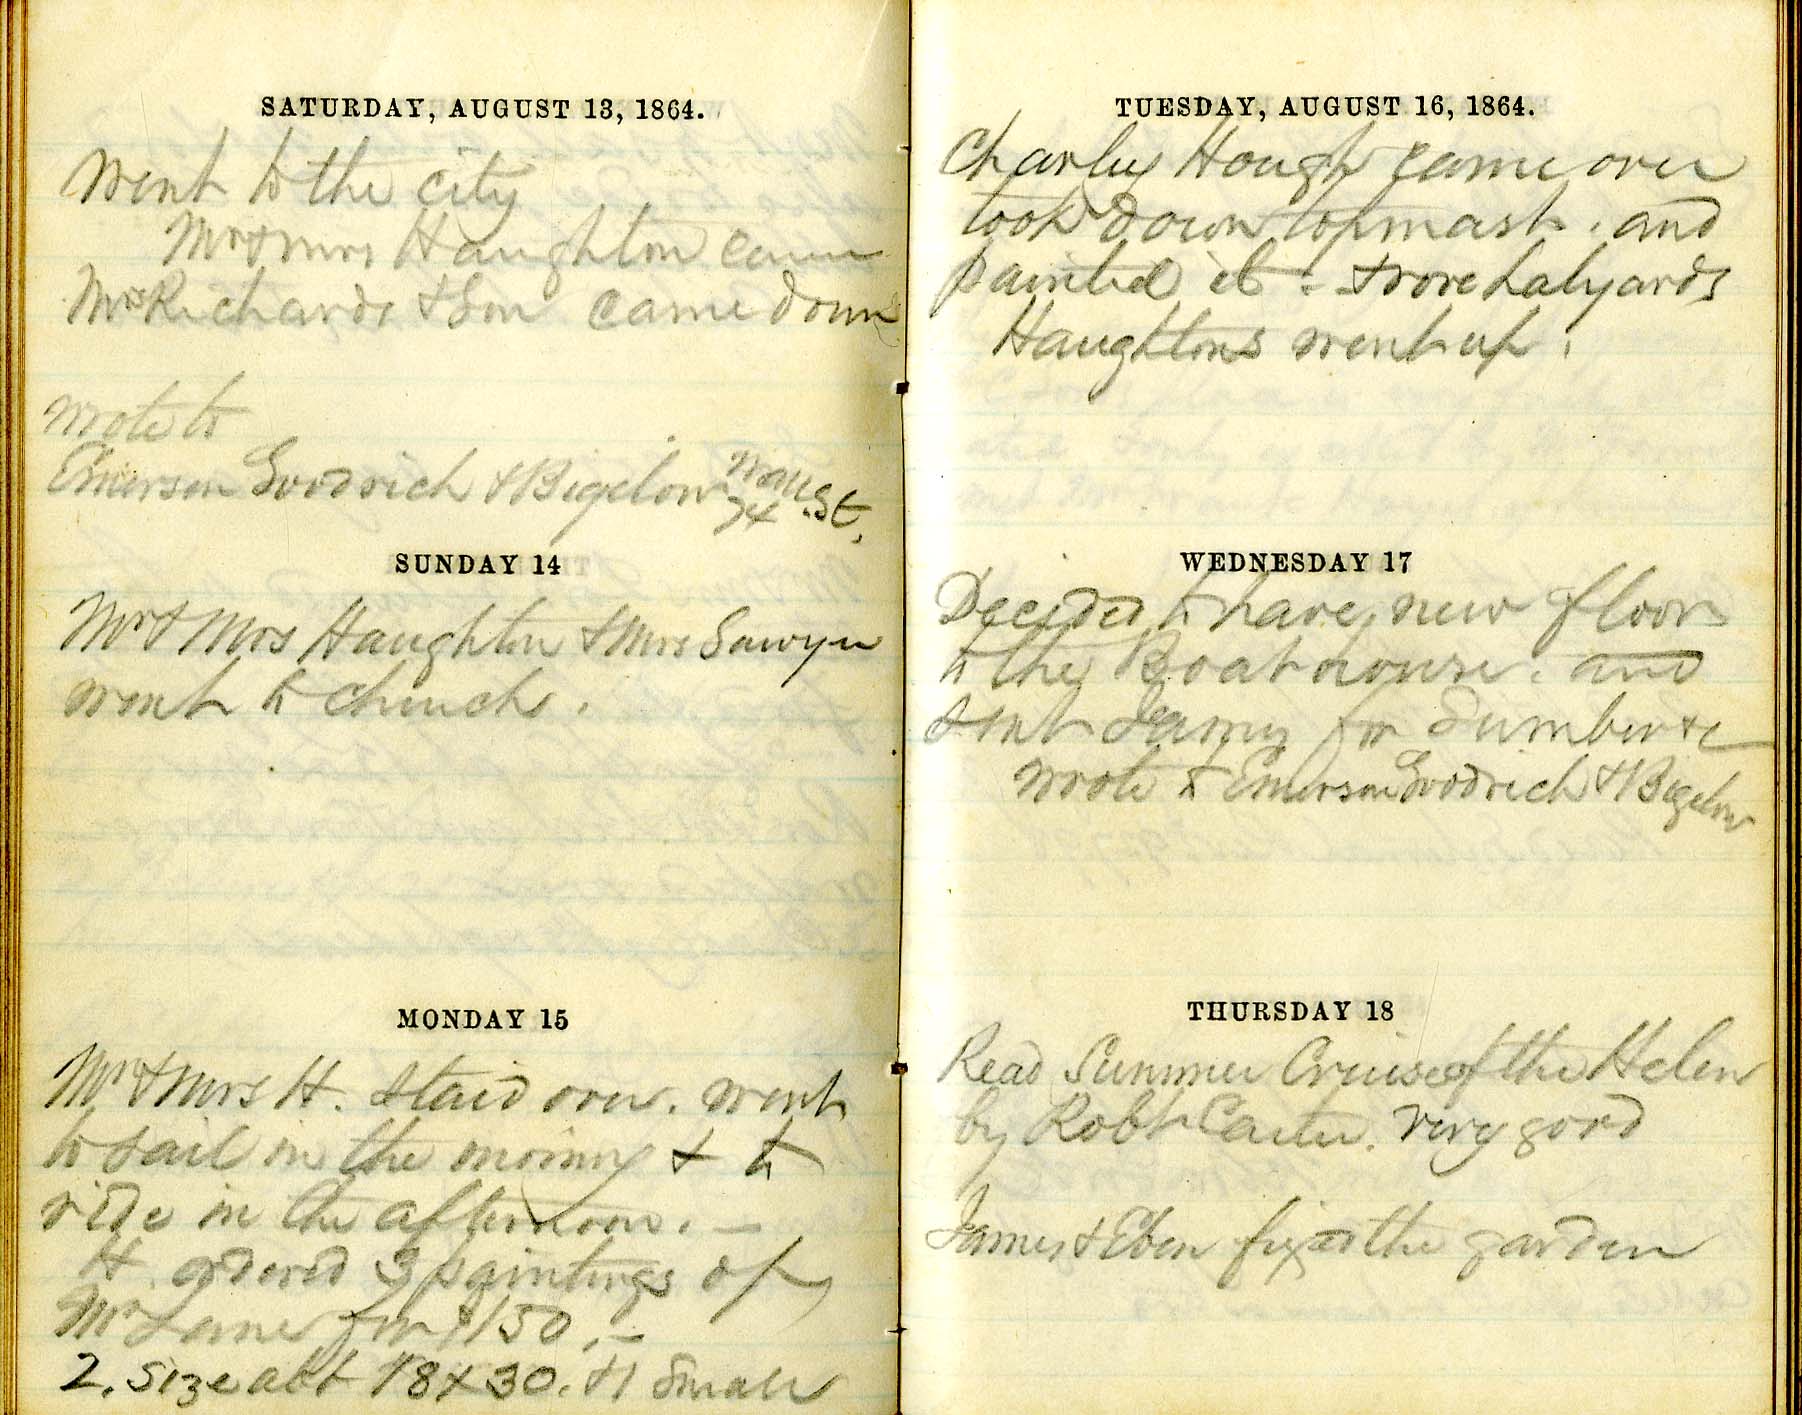 SATURDAY, AUGUST 13, 1864.
Went to the city
Mr & Mrs Haughton came
Mrs Richards & Son came down
Wrote to
Emerson Goodrich & Bigelow
74
St.
SUNDAY 14
Mr & Mrs Haughton & Mrs Sawyer
went to church.
MONDAY 15
Mr & Mrs H. staid over. went
to sail in the morning & to
ride in the afternoon. —
H. ordered 3 paintings of
Mr Lane for $150. —
2. size abt 18 x 30. & 1 small
TUESDAY, AUGUST 16, 1864.
Charley Hough came over
took down topmast. and
painted it - & rove halyards
Haughtons went up.
WEDNESDAY 17
Decided to have new floor
to the Boat house. and
sent James for Lumber &c
Wrote to Emerson Goodrich & Bigelow
THURSDAY 18
Read Summer Cruise of the Helen
by Robt Carter. very good
James & Eben fixed the garden